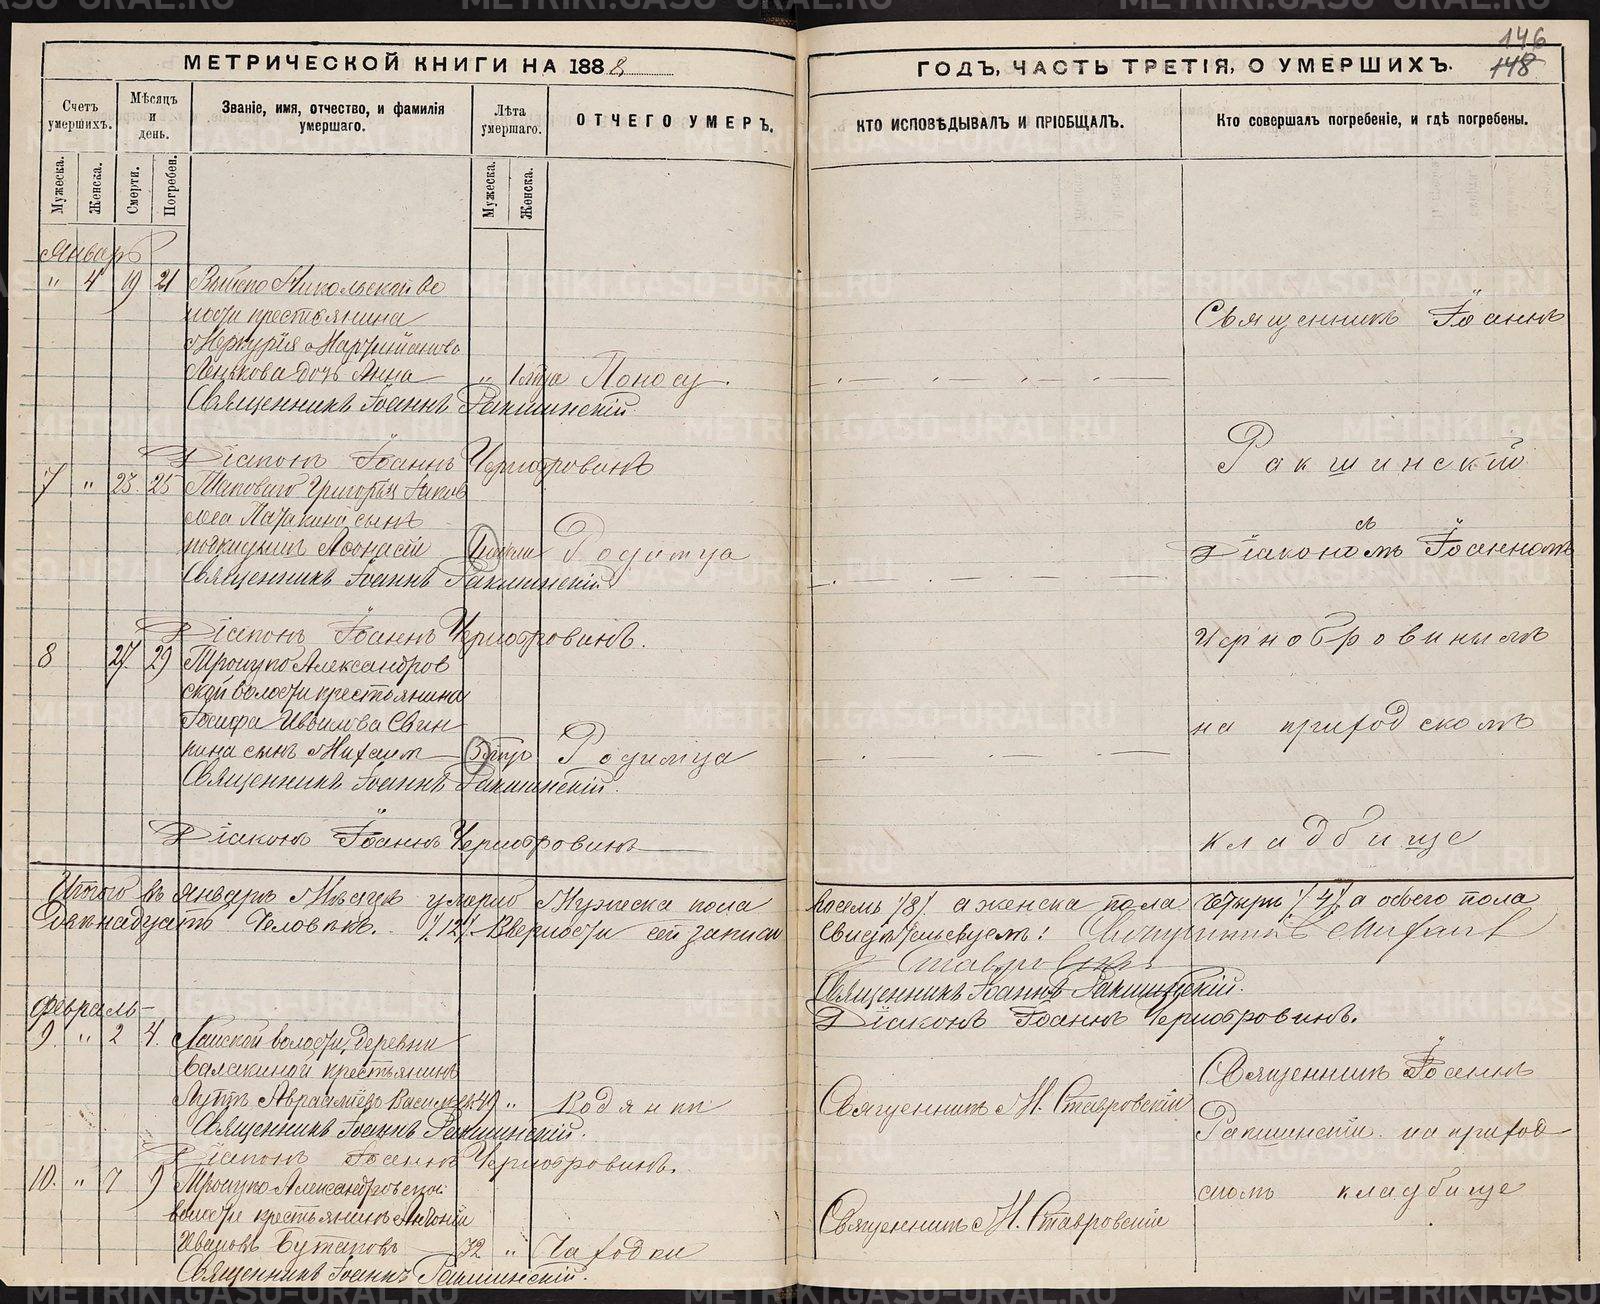 146
148
МЕТРИЧЕСКОЙ КНИГИ НА 1888
ГОДЪ, ЧАСТЬ ТРЕТІЯ, О УМЕРШИХЪ.
Счетъ умершихъ.
Мѣсяцъ и день.
Званіе, имя, отчество, и фамилія умершаго.
Лѣта умершаго.
ОТЧЕГО УМЕРЪ.
КТО ИСПОВѢДЫВАЛЪ И ПРІОБЩАЛЪ.
Кто совершалъ погребеніе, и гдѣ погребены.
Мужеска.
Женска.
Смерти.
Погребен.
Мужеска.
Женска.
Январь
" 4 19 21 Выйско Никольской во
лости крестьянина
Меркурія
дочь Анна " Поносу.
Священникъ Іоаннъ Ракшинскій.
Діаконъ Іоаннъ Чернобровинъ
7 " 23 25 Григорья Іаков
лева сынъ
подкидышъ Аѳонасій Родимца
Священникъ Іоаннъ Ракшинскій
Діаконъ Іоаннъ Чернобровинъ.
8 27 29 Троицко Александров
ской волости крестьянина
Іосифа Свин
кина сынъ Михаилъ Родимца
Священникъ Іоаннъ Ракшинскій.
Діаконъ Іоаннъ Чернобровинъ
Священникъ Іоаннъ
Ракшинскій
съ
Діакономъ Іоанномъ
Чернобровинымъ
на приходскомъ
кладбище
Итого въ Январѣ Мѣсяцѣ умерло Мужеска пола восемь /8/. а женска пола четыре /4/. а обоего пола
двѣнадцать Человѣкъ. /12/. Вѣрности сей записи свидѣтельствуемъ: Михаилъ
Ставровскій
Священникъ Іоаннъ Ракшинскій.
Діаконъ Іоаннъ Чернобровинъ.
Февраль
9. " 2 4. Лайской волости, деревни
Балакиной крестьянинъ
Аврааміевъ 49 " Водянки
Священникъ Іоаннъ Ракшинскій.
Діаконъ Іоаннъ Чернобровинъ.
Священникъ М. Ставровскій
Священникъ Іоаннъ
Ракшинскій на приход
скомъ кладбище
10. " 7 9 Троицко Александровской
волости крестьянинъ Антоній
Ивановъ Бутаковъ 72 " Чахотки
Священникъ Іоаннъ Ракшинскій.
Священникъ М. Ставровскій
METRIKI.GASO-URAL.RU